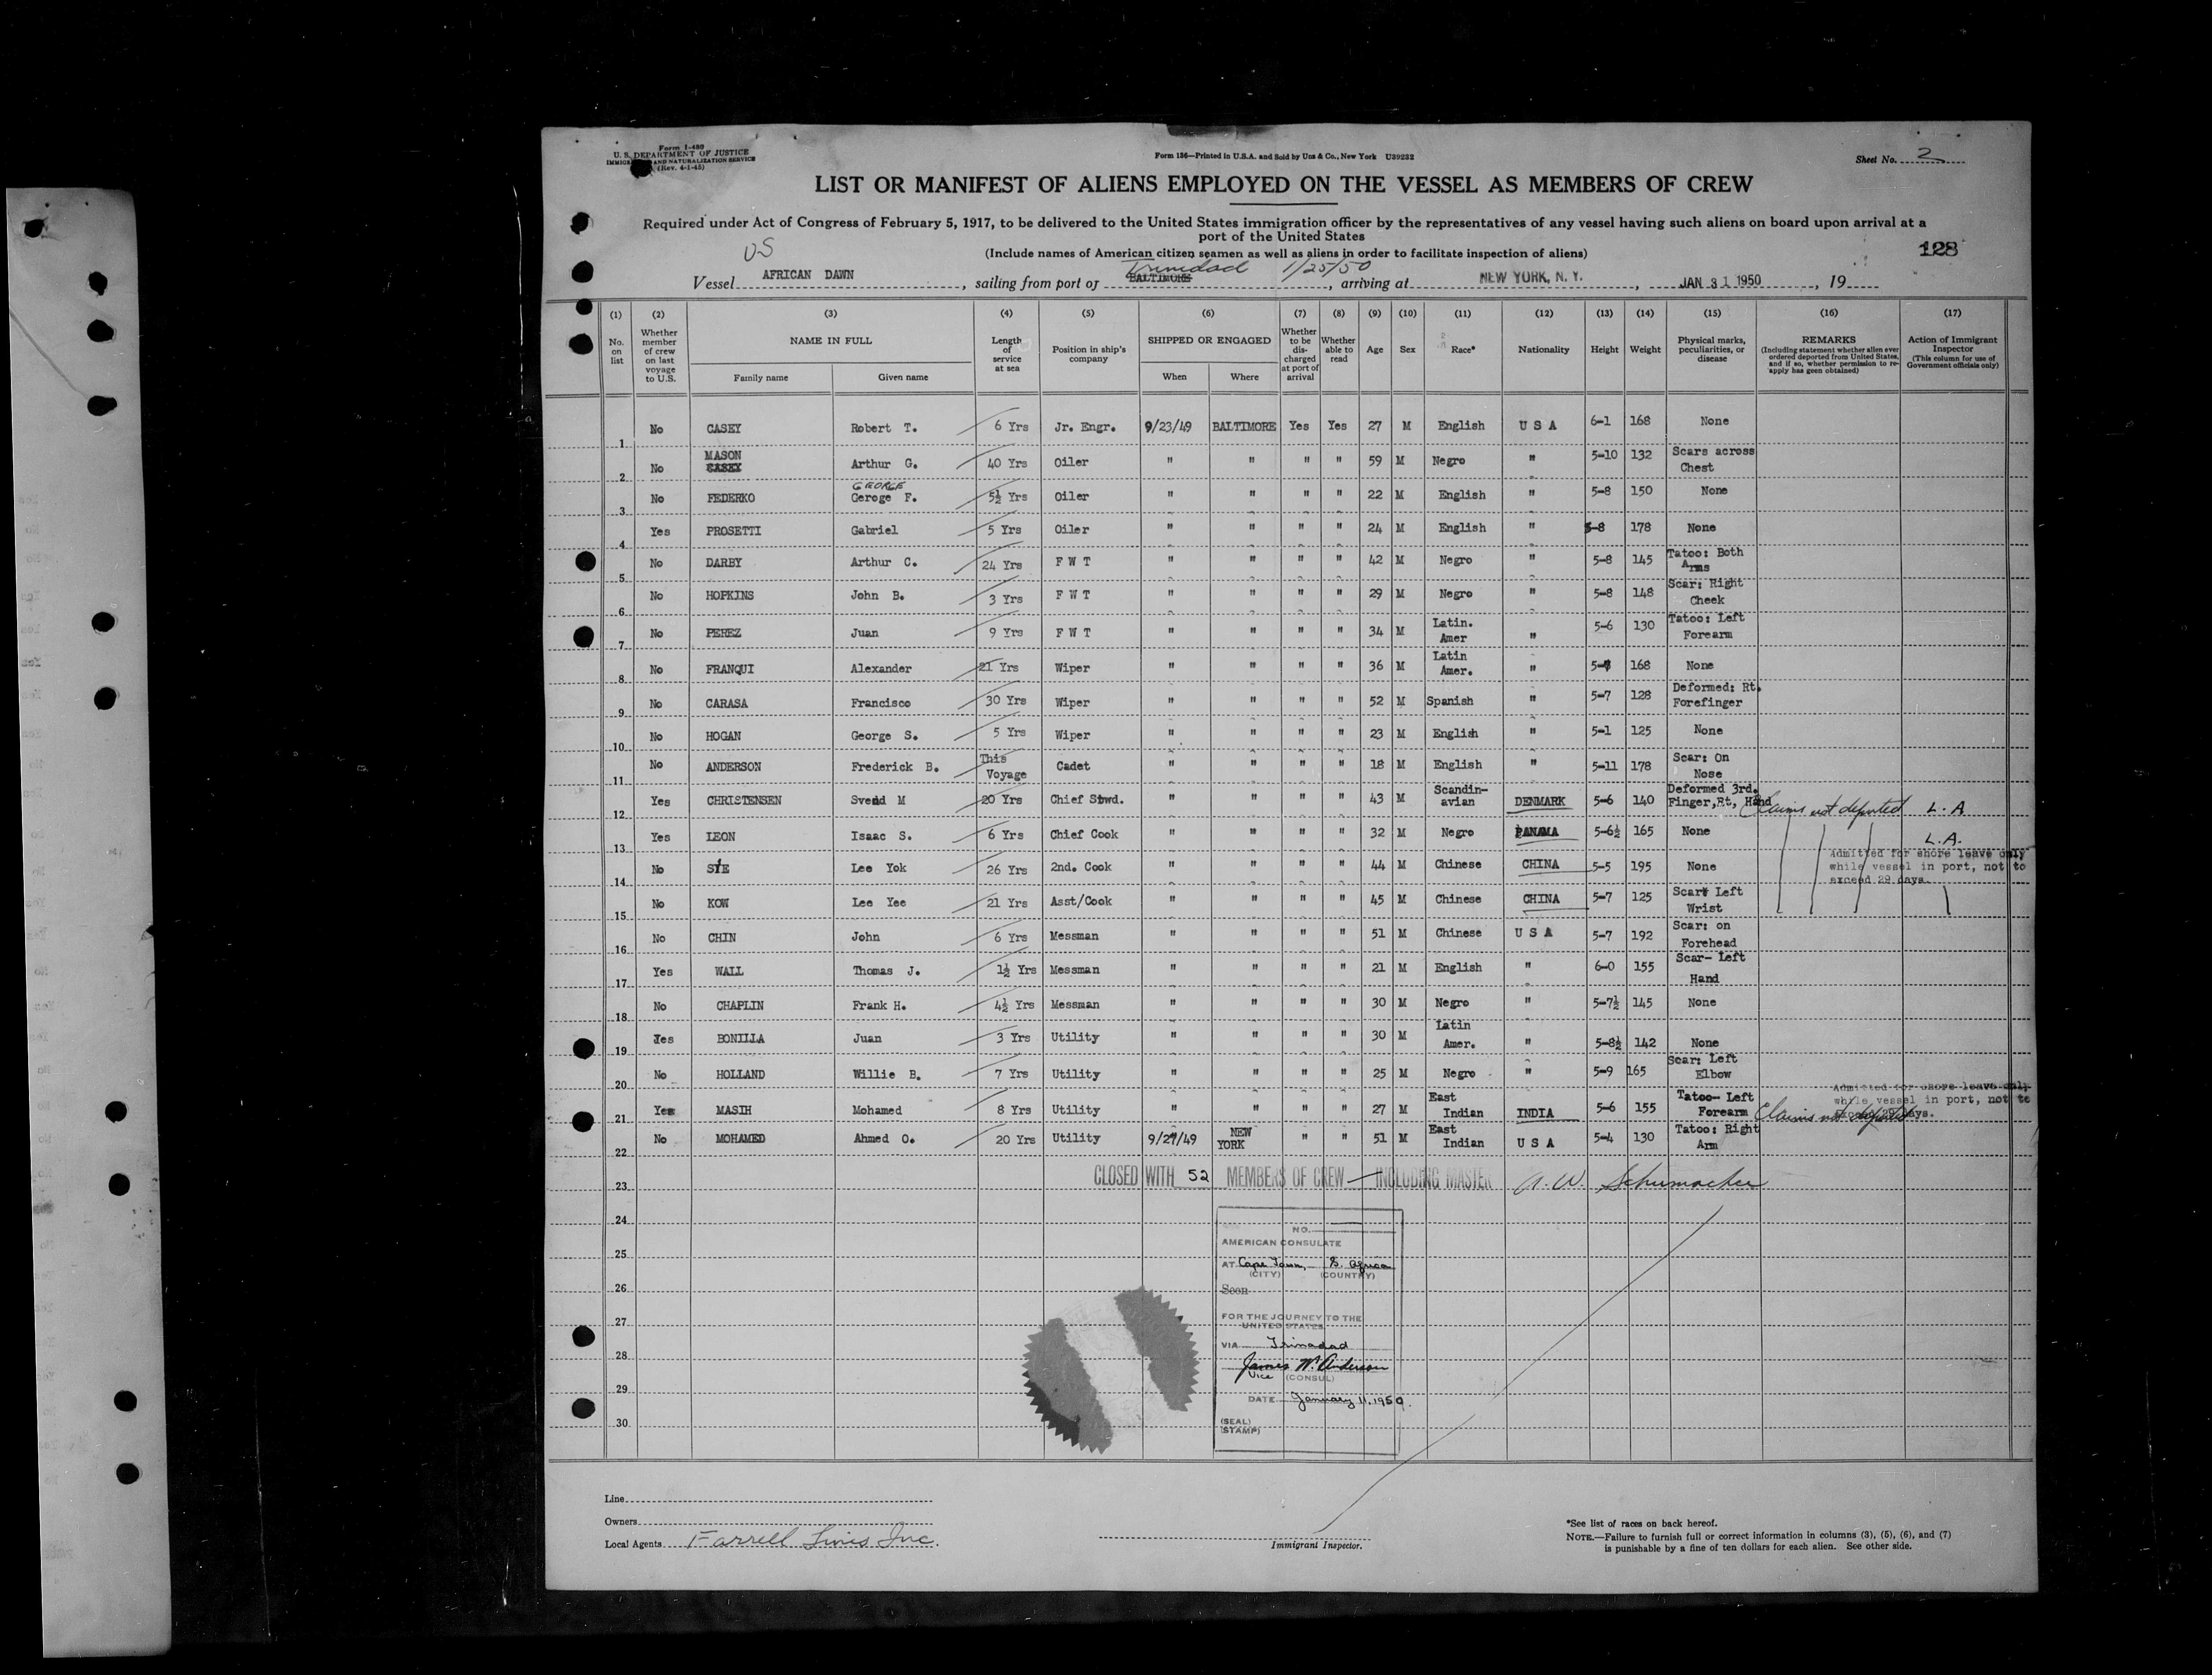 Form I-480
U. S. DEPARTMENT OF JUSTICE
IMMIGRATION AND NATURALIZATION SERVICE
(Rev. 4-1-45)
Form 136—Printed in U.S.A. and Sold by Unz & Co., New York U39232
Sheet No. 2
LIST OR MANIFEST OF ALIENS EMPLOYED ON THE VESSEL AS MEMBERS OF CREW
Required under Act of Congress of February 5, 1917, to be delivered to the United States immigration officer by the representatives of any vessel having such aliens on board upon arrival at a
port of the United States
(Include names of American citizen seamen as well as aliens in order to facilitate inspection of aliens)
128
US
Trinidad 1/25/50
Vessel AFRICAN DAWN, sailing from port of BALTIMORE, arriving at NEW YORK, N. Y., JAN 31 1950, 19
(1) (2) (3) (4) (5) (6) (7) (8) (9) (10) (11) (12) (13) (14) (15) (16) (17)
No. on list
Whether member of crew on last voyage to U.S.
NAME IN FULL
Family name Given name
Length of service at sea
Position in ship's company
SHIPPED OR ENGAGED
When Where
Whether to be discharged at port of arrival
Whether able to read
Age Sex Race* Nationality Height Weight
Physical marks, peculiarities, or disease
REMARKS
(Including statement whether alien ever ordered deported from United States, and if so, whether permission to re-apply has been obtained)
Action of Immigrant Inspector
(This column for use of Government officials only)
1 No CASEY Robert T. 6 Yrs Jr. Engr. 9/23/49 BALTIMORE Yes Yes 27 M English U S A 6-1 168 None
2 No MASON CASEY Arthur G. 40 Yrs Oiler " " " " 59 M Negro " 5-10 132 Scars across Chest
3 No FEDERKO GEORGE Geroge F. 5½ Yrs Oiler " " " " 22 M English " 5-8 150 None
4 Yes PROSETTI Gabriel 5 Yrs Oiler " " " " 24 M English " 5-8 178 None
5 No DARBY Arthur C. 24 Yrs F W T " " " " 42 M Negro " 5-8 145 Tatoo: Both Arms
6 No HOPKINS John B. 3 Yrs F W T " " " " 29 M Negro " 5-8 148 Scar: Right Cheek
7 No PEREZ Juan 9 Yrs F W T " " " " 34 M Latin. Amer " 5-6 130 Tatoo: Left Forearm
8 No FRANQUI Alexander 21 Yrs Wiper " " " " 36 M Latin Amer. " 5-7 168 None
9 No CARASA Francisco 30 Yrs Wiper " " " " 52 M Spanish " 5-7 128 Deformed: Rt. Forefinger
10 No HOGAN George S. 5 Yrs Wiper " " " " 23 M English " 5-1 125 None
11 No ANDERSON Frederick B. This Voyage Cadet " " " " 18 M English " 5-11 178 Scar: On Nose
12 Yes CHRISTENSEN Svend M 20 Yrs Chief Stwd. " " " " 43 M Scandin-avian DENMARK 5-6 140 Deformed 3rd. Finger,Rt, Hand Claims not deported L.A
13 Yes LEON Isaac S. 6 Yrs Chief Cook " " " " 32 M Negro PANAMA 5-6½ 165 None L.A.
14 No SIE Lee Yok 26 Yrs 2nd. Cook " " " " 44 M Chinese CHINA 5-5 195 None Admitted for shore leave only while vessel in port, not to exceed 29 days.
15 No KOW Lee Yee 21 Yrs Asst/Cook " " " " 45 M Chinese CHINA 5-7 125 Scar: Left Wrist
16 No CHIN John 6 Yrs Messman " " " " 51 M Chinese U S A 5-7 192 Scar: on Forehead
17 Yes WALL Thomas J. 1½ Yrs Messman " " " " 21 M English " 6-0 155 Scar- Left Hand
18 No CHAPLIN Frank H. 4½ Yrs Messman " " " " 30 M Negro " 5-7½ 145 None
19 Yes BONILLA Juan 3 Yrs Utility " " " " 30 M Latin Amer. " 5-8½ 142 None
20 No HOLLAND Willie B. 7 Yrs Utility " " " " 25 M Negro " 5-9 165 Scar: Left Elbow
21 Yes MASIH Mohamed 8 Yrs Utility " " " " 27 M East Indian INDIA 5-6 155 Tatoo- Left Forearm Claims not deported Admitted for shore leave only while vessel in port, not to exceed 29 days.
22 No MOHAMED Ahmed O. 20 Yrs Utility 9/27/49 NEW YORK " " 51 M East Indian U S A 5-4 130 Tatoo: Right Arm
23 CLOSED WITH 52 MEMBERS OF CREW — INCLUDING MASTER A. W. Schumacher
24
25
26
27
28
29
30
NO.
AMERICAN CONSULATE
AT Cape Town, S. Africa
(CITY) (COUNTRY)
Seen
FOR THE JOURNEY TO THE
UNITED STATES
VIA Trinadad
James W. Anderson
Vice (CONSUL)
DATE January 11, 1950.
(SEAL)
(STAMP)
Line
Owners
Local Agents Farrell Lines Inc.
Immigrant Inspector.
*See list of races on back hereof.
NOTE.—Failure to furnish full or correct information in columns (3), (5), (6), and (7)
is punishable by a fine of ten dollars for each alien. See other side.